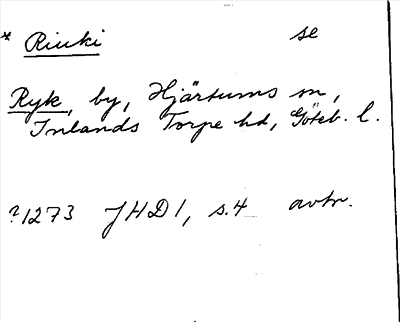 * Riuki se
Ryk, by, Hjärtums sn,
Inlands Torpe hd, Göteb. l.
?1273 JHD 1, s.4 avtr.